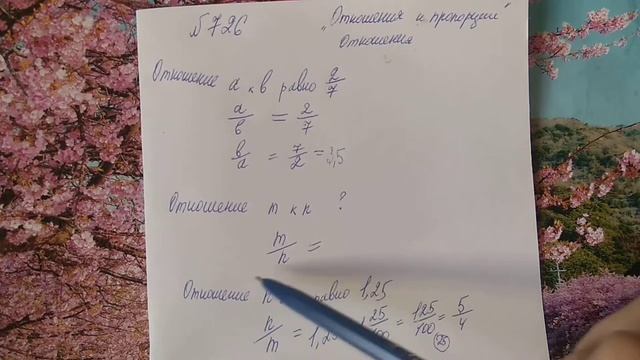 №726
„Отношения и пропорции"
Отношения
Отношение a к b равно 2/7
a/b = 2/7
b/a = 7/2 = 3,5
Отношение m к n ?
m/n =
Отношение n равно 1,25
n/m = 1,25 = 125/100 = 5/4